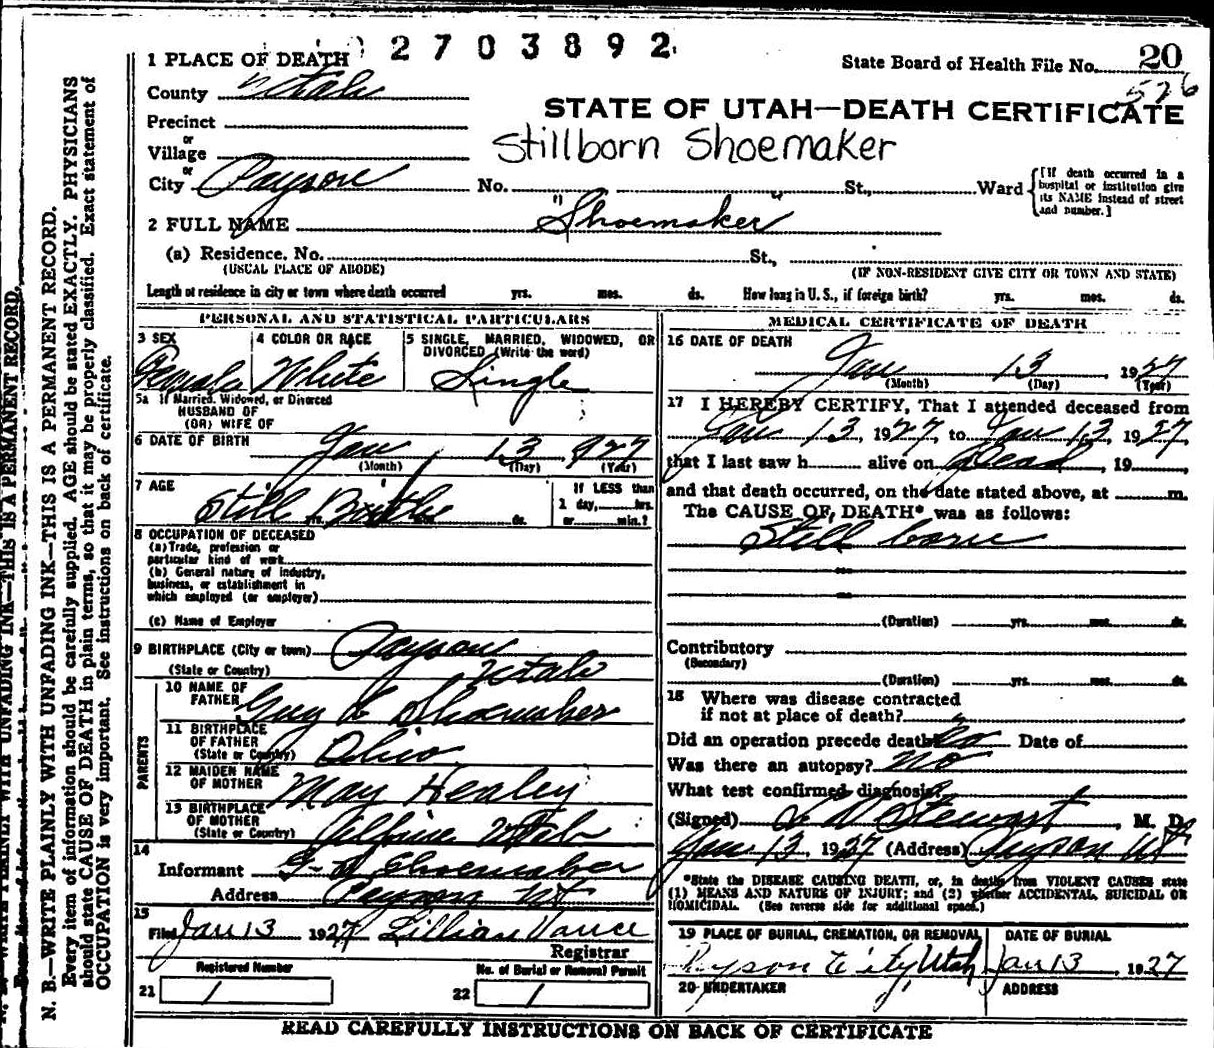 2703892
1 PLACE OF DEATH
State Board of Health File No. 20
526
County Utah
STATE OF UTAH—DEATH CERTIFICATE
Precinct
or
Village
Stillborn Shoemaker
or
City Payson No. St., Ward
[If death occurred in a hospital or institution give its NAME instead of street and number.]
2 FULL NAME "Shoemaker"
(a) Residence. No. St.,
(USUAL PLACE OF ABODE) (IF NON-RESIDENT GIVE CITY OR TOWN AND STATE)
Length of residence in city or town where death occurred yrs. mos. ds. How long in U. S., if foreign birth? yrs. mos. ds.
PERSONAL AND STATISTICAL PARTICULARS
3 SEX
Female
4 COLOR OR RACE
White
5 SINGLE, MARRIED, WIDOWED, OR
DIVORCED (Write the word)
Single
5a If Married, Widowed, or Divorced
HUSBAND OF
(OR) WIFE OF
6 DATE OF BIRTH Jan 13 1927
(Month) (Day) (Year)
7 AGE
Still Birth
yrs. mos. ds.
If LESS than
1 day, hrs.
or min.?
8 OCCUPATION OF DECEASED
(a) Trade, profession or
particular kind of work
(b) General nature of industry,
business, or establishment in
which employed (or employer)
(c) Name of Employer
9 BIRTHPLACE (City or town) Payson
(State or Country) Utah
PARENTS
10 NAME OF
FATHER Guy Shoemaker
11 BIRTHPLACE
OF FATHER
(State or Country) Ohio
12 MAIDEN NAME
OF MOTHER May Healey
13 BIRTHPLACE
OF MOTHER
(State or Country) Alpine Utah
14
Informant G Shoemaker
Address Payson Ut
15
Filed Jan 13 1927 Lillian Vance
Registrar
Registered Number
21 1
No. of Burial or Removal Permit
22 1
MEDICAL CERTIFICATE OF DEATH
16 DATE OF DEATH
Jan 13, 1927
(Month) (Day) (Year)
17 I HEREBY CERTIFY, That I attended deceased from
Jan 13, 1927, to Jan 13, 1927
that I last saw h alive on dead, 19
and that death occurred, on the date stated above, at m.
The CAUSE OF DEATH* was as follows:
Still born
(Duration) yrs. mos. ds.
Contributory
(Secondary)
(Duration) yrs. mos. ds.
18 Where was disease contracted
if not at place of death?
Did an operation precede death? no Date of
Was there an autopsy? No
What test confirmed diagnosis?
(Signed) Stewart, M. D.
Jan 13, 1927 (Address) Payson Ut
*State the DISEASE CAUSING DEATH, or, in deaths from VIOLENT CAUSES state
(1) MEANS AND NATURE OF INJURY; and (2) whether ACCIDENTAL, SUICIDAL OR
HOMICIDAL. (See reverse side for additional space.)
19 PLACE OF BURIAL, CREMATION, OR REMOVAL
Payson City Utah
DATE OF BURIAL
Jan 13, 1927
20 UNDERTAKER
ADDRESS
READ CAREFULLY INSTRUCTIONS ON BACK OF CERTIFICATE
N. B.—WRITE PLAINLY WITH UNFADING INK—THIS IS A PERMANENT RECORD.
Every item of information should be carefully supplied. AGE should be stated EXACTLY. PHYSICIANS
should state CAUSE OF DEATH in plain terms, so that it may be properly classified. Exact statement of
OCCUPATION is very important. See instructions on back of certificate.